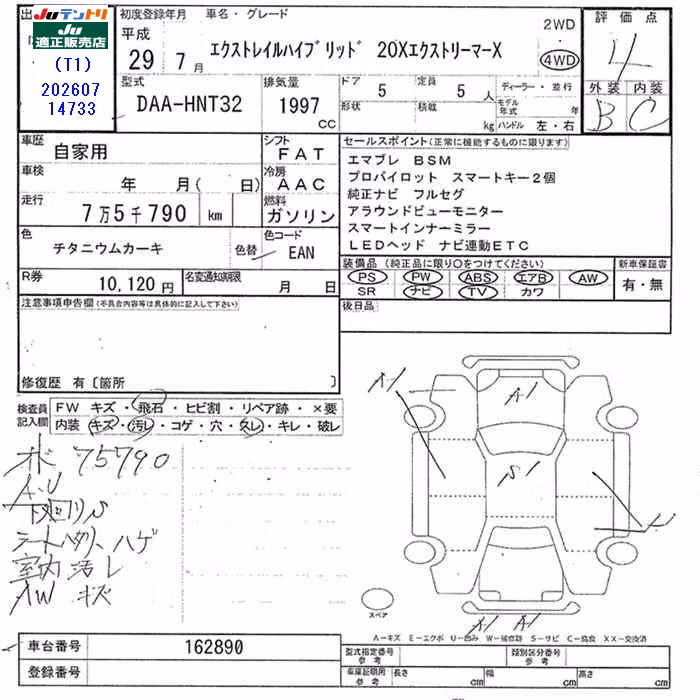 出
JUテントリ
JU 適正販売店
(T1)
202607
14733
初度登録年月 車名・グレード
平成
29 7月
エクストレイルハイブリッド 20XエクストリーマーX
2WD
4WD
評価点
4
外装 内装
B C
型式
DAA-HNT32
排気量
1997
CC
ドア 5
形状
定員 5 人
積載 kg
ディーラー・並行
モデル年式 年
ハンドル 左・右
車歴
自家用
シフト
FAT
車検
年 月( 日)
冷房
AAC
走行
7万5千790 km
燃料
ガソリン
色
チタニウムカーキ
色替
色コード
EAN
R券
10,120円
名変通知期限
月 日
セールスポイント(正常に機能するものに限ります)
エマブレ BSM
プロパイロット スマートキー2個
純正ナビ フルセグ
アラウンドビューモニター
スマートインナーミラー
LEDヘッド ナビ連動ETC
装備品(純正品に限り○をつけてください)
PS PW ABS エアB AW
SR ナビ TV カワ
新車保証書
有・無
後日品
注意事項申告欄(不具合内容等は具体的に記入して下さい)
修復歴 有〔箇所 〕
検査員記入欄
FW キズ・飛石・ヒビ割・リペア跡・×要
内装 キズ・汚レ・コゲ・穴・スレ・キレ・破レ
75790
A・U
下廻りS
シートヘタリ、ハゲ
室内汚レ
AW キズ
A1
A1
S1
A1 A1
スペア
A−キズ E−エクボ U−凹み W−補修跡 S−サビ C−腐食 XX−交換済
車台番号
162890
登録番号
型式指定番号 参考
類別区分番号 参考
車庫証明用 参考
長さ cm
幅 cm
高さ cm